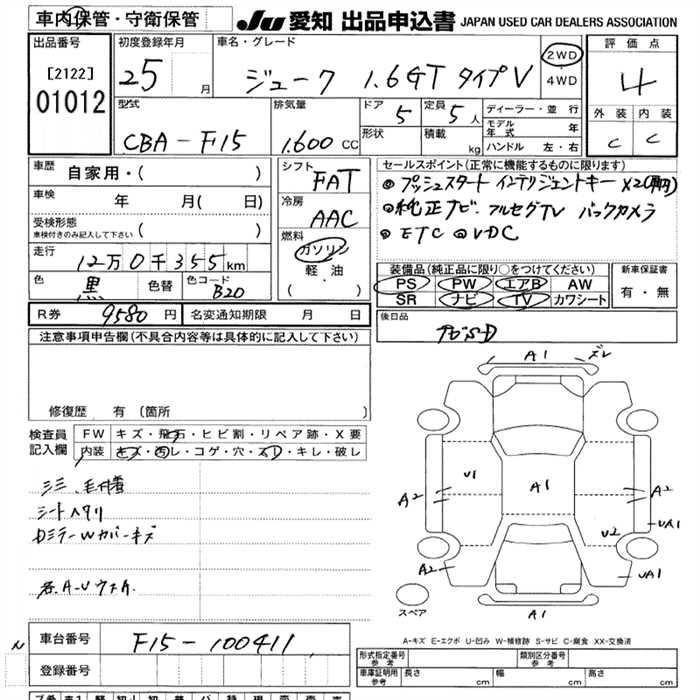 車内保管・守衛保管
JU 愛知 出品申込書 JAPAN USED CAR DEALERS ASSOCIATION
出品番号
[2122]
01012
初度登録年月
25 月
車名・グレード
ジューク 1.6GT タイプV
2WD
4WD
評価点
4
外装 内装
C C
型式
CBA-F15
排気量
1.600 CC
ドア 5
定員 5 人
形状
積載 kg
ディーラー・並行
モデル年式 年
ハンドル 左・右
車歴 自家用・( )
車検 年 月( 日)
受検形態
車検付きのみ記入して下さい ( )
走行
12万0千355km
色 黒 色替 色コード B20
シフト
FAT
冷房
AAC
燃料
ガソリン
軽油
( )
セールスポイント(正常に機能するものに限ります)
◎プッシュスタート インテリジェントキー
◎純正ナビ・フルセグTV バックカメラ
◎ETC ◎VDC
装備品(純正品に限り○をつけてください)
PS PW エアB AW
SR ナビ TV カワシート
新車保証書
有・無
R券 9580 円
名変通知期限 月 日
後日品
注意事項申告欄(不具合内容等は具体的に記入して下さい)
修復歴 有(箇所 )
検査員記入欄
FW キズ・飛石・ヒビ割・リペア跡・X要
内装 キズ・汚レ・コゲ・穴・スレ・キレ・破レ
シートヘタリ
DミラーWカバーキズ
A1 ズレ
U1 A1
A2 A2
UA1
U2
A2 UA1
A1
スペア
A-キズ E-エクボ U-凹み W-補修跡 S-サビ C-腐食 XX-交換済
車台番号 F15-100411
N
登録番号
形式指定番号 参考
類別区分番号 参考
車庫証明用 参考
長さ cm 幅 cm 高さ cm